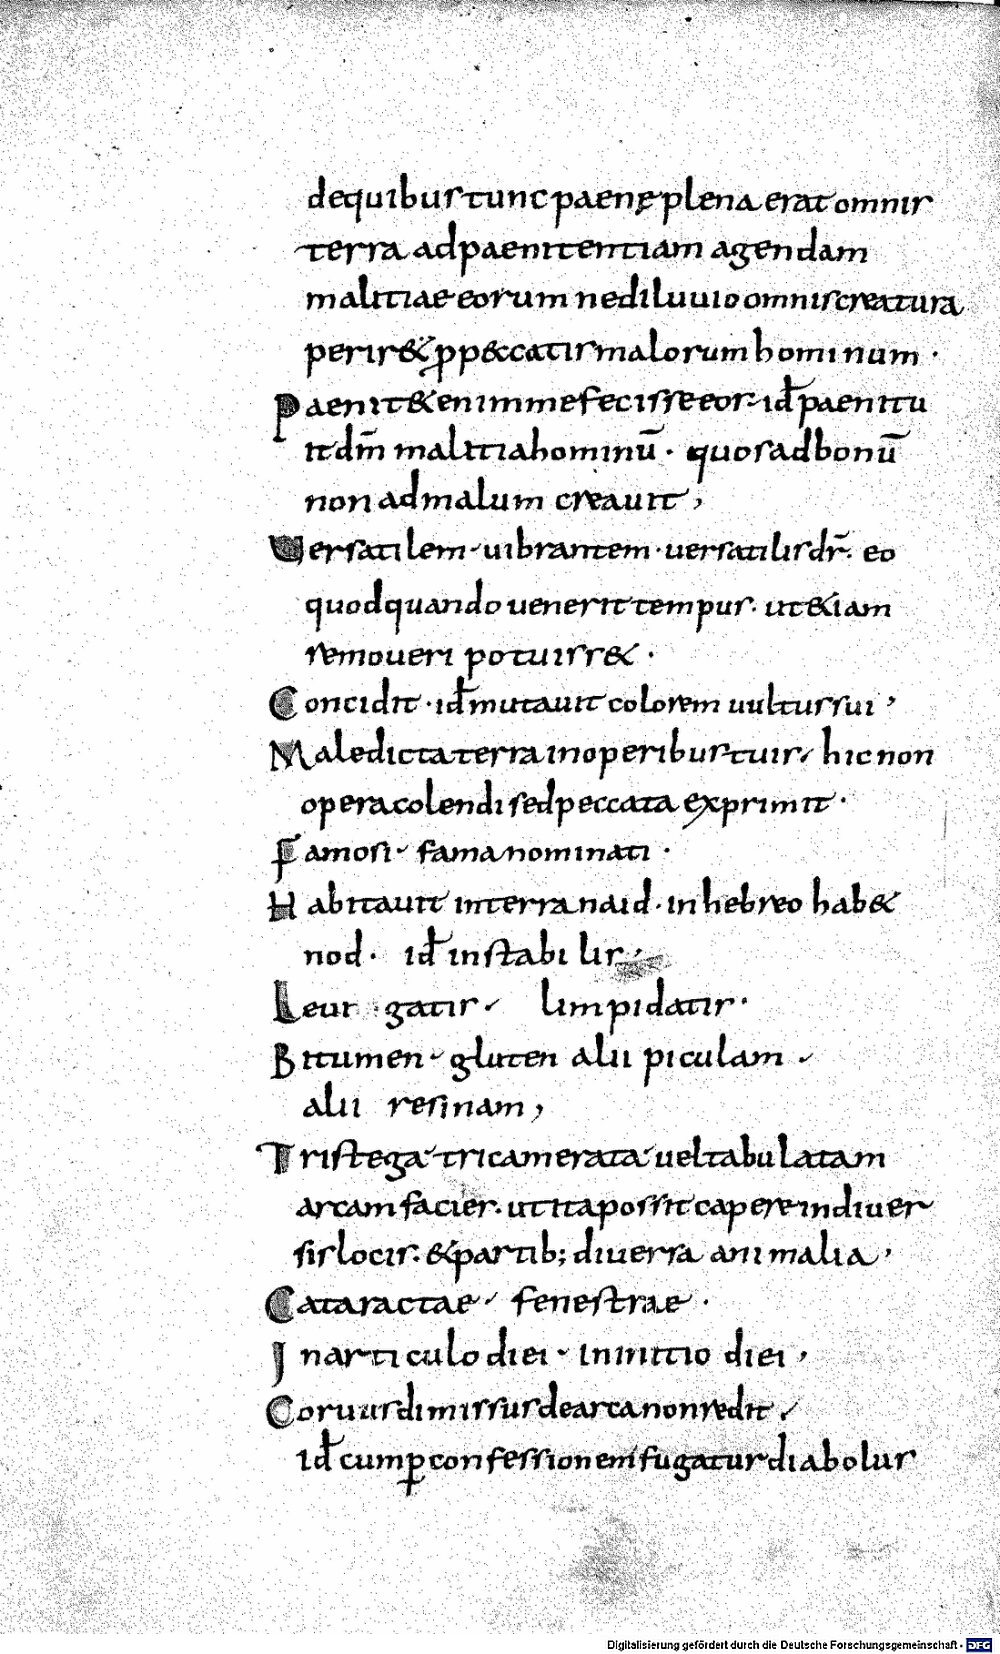 dequibus tunc paenę plena erat omnis
terra ad paenitentiam agendam
malitiae eorum ne diluuio omnis creatura
peris& ꝓ peccatis malorum hominum ·
Paenit& enim me fecisse eos · id̄ paenitu
it dm̄ malitia hominū · quos ad bonū
non ad malum creauit ,
Uersatilem · uibrantem · uersatilis dr̄ · eo
quod quando uenerit tempus · ut &iam
remoueri potuiss& ·
Concidit · id̄ mutauit colorem uultus sui ,
Maledicta terra in operibus tuis · hic non
opera colendi sed peccata exprimit ·
Famosi · fama nominati ·
Habitauit in terra naid · in hebreo hab&
nod · id̄ instabilis ·
Leui · gatis · limpidatis ·
Bitumen · gluten alii piculam ·
alii resinam ,
Tristega · tricamerata uel tabulatam
arcam facies · ut ita possit capere in diuer
sis locis · & partib; diuersa animalia ,
Cataractae · fenestrae ·
In articulo diei · in initio diei ,
Coruus dimissus de arca non redit ,
id̄ cum ꝑ confessionem fugatur diabolus
Digitalisierung gefördert durch die Deutsche Forschungsgemeinschaft · DFG